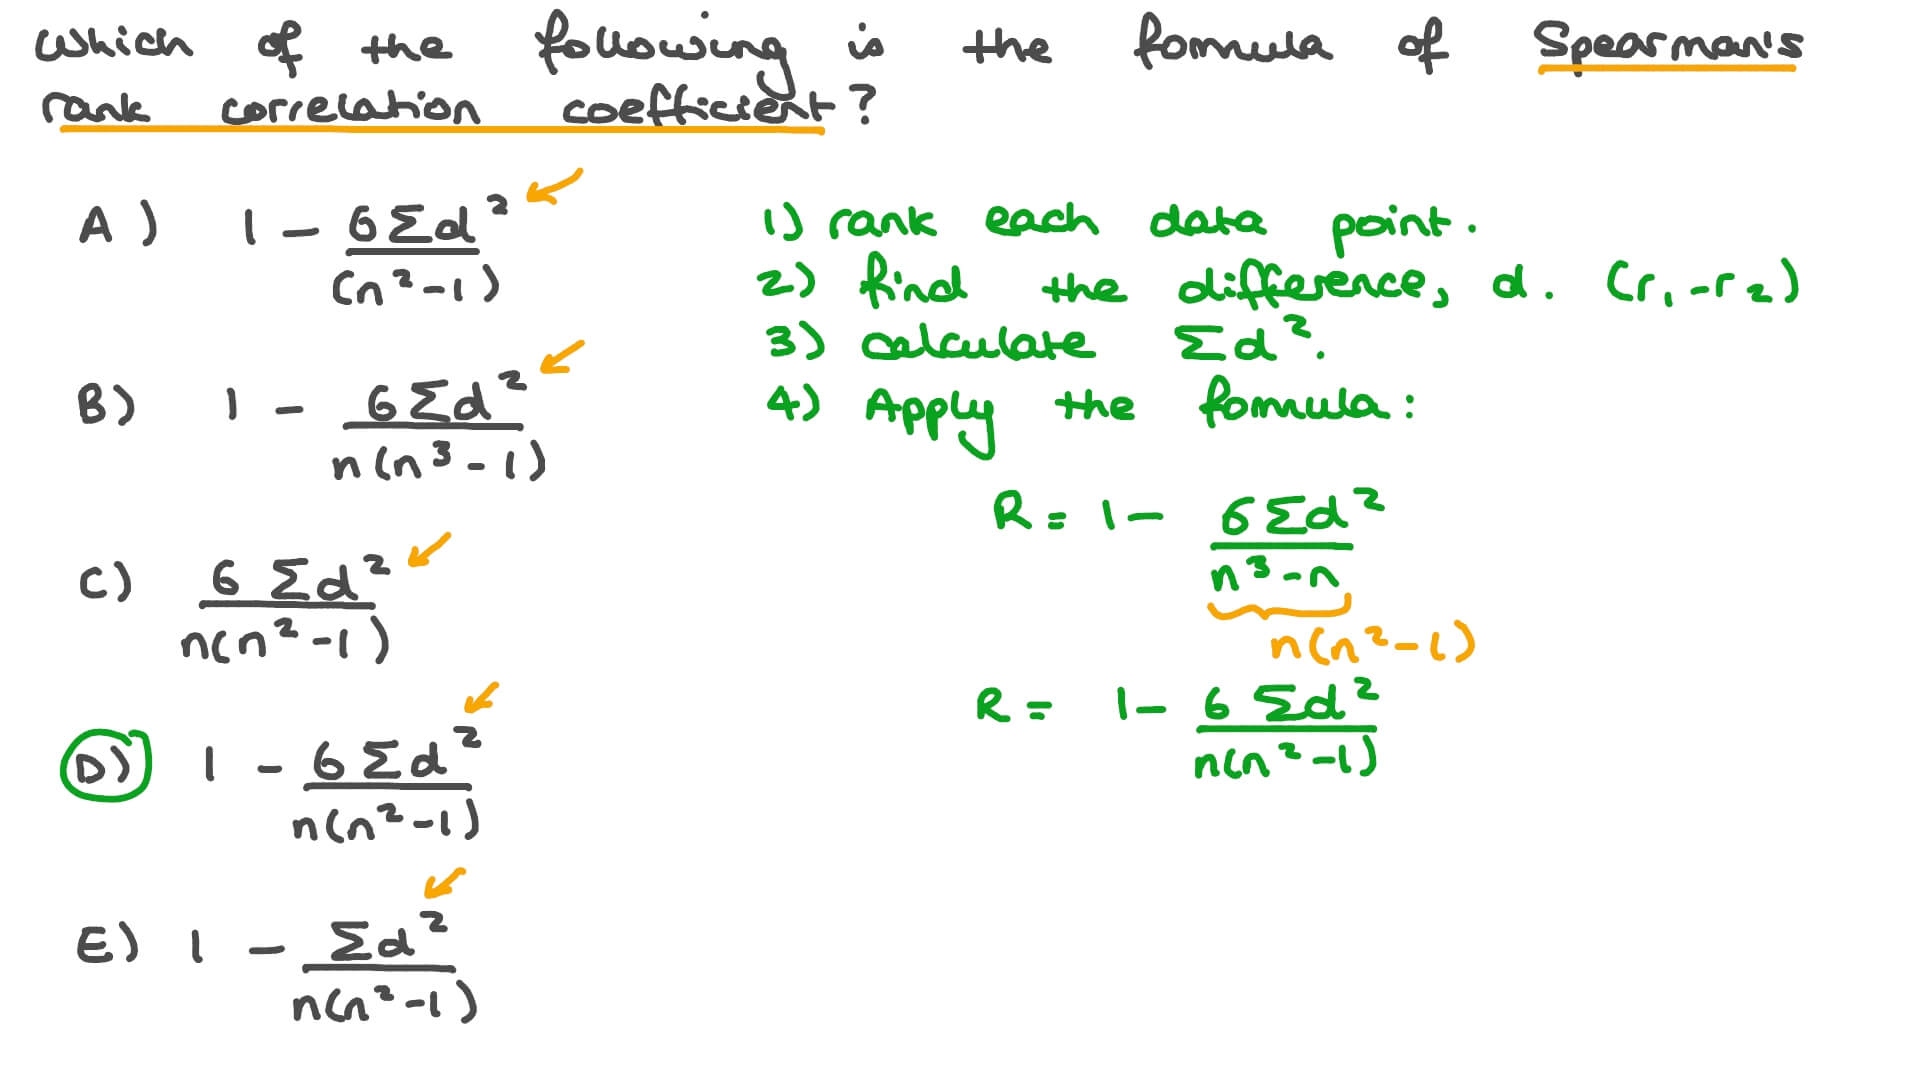 Which of the following is the fomula of Spearman's
rank correlation coefficient?
A) 1 - 6Σd² / (n²-1)
B) 1 - 6Σd² / n(n³-1)
C) 6Σd² / n(n²-1)
D) 1 - 6Σd² / n(n²-1)
E) 1 - Σd² / n(n²-1)
1) rank each data point.
2) find the difference, d. (r₁-r₂)
3) calculate Σd².
4) Apply the fomula:
R = 1 - 6Σd² / n³-n
n(n²-1)
R = 1 - 6Σd² / n(n²-1)